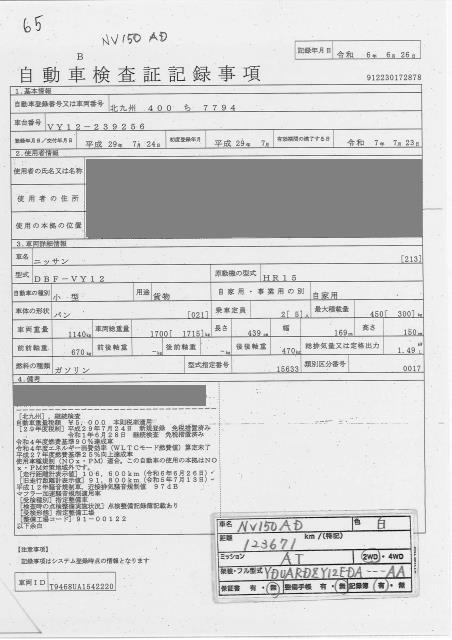 65
NV150 AD
B
記録年月日 令和 6年 6月 26日
自動車検査証記録事項
912230172878
1.基本情報
自動車登録番号又は車両番号 北九州 400 ち 7794
車台番号 VY12-239256
登録年月日/交付年月日 平成 29年 7月 24日 初度登録年月 平成 29年 7月 有効期間の満了する日 令和 7年 7月 23日
2.使用者情報
使用者の氏名又は名称
使用者の住所
使用の本拠の位置
3.車両詳細情報
車名 ニッサン [213]
型式 DBF-VY12 原動機の型式 HR15
自動車の種別 小型 用途 貨物 自家用・事業用の別 自家用
車体の形状 バン [021] 乗車定員 2[ 5]人 最大積載量 450[ 300]kg
車両重量 1140kg 車両総重量 1700[ 1715]kg 長さ 439cm 幅 169cm 高さ 150cm
前前軸重 670kg 前後軸重 -kg 後前軸重 -kg 後後軸重 470kg 総排気量又は定格出力 1.49 L
燃料の種類 ガソリン 型式指定番号 15633 類別区分番号 0017
4.備考
[北九州],継続検査
自動車重量税額 ¥5,000 本則税率適用
[29年度税制]平成29年7月24日 新規登録 免税措置済み
令和1年6月28日 継続検査 免税措置済み
令和4年度燃費基準90%達成車
令和4年度エネルギー消費効率(WLTCモード燃費値)算定未了
平成27年度燃費基準25%向上達成車
使用車種規制(NOx・PM)適合。この自動車の使用の本拠はNO
x・PM対策地域外です。
[走行距離計表示値]106,600km(令和6年6月26日)
[旧走行距離計表示値]91,800km(令和5年7月13日)
平成12年騒音規制車、近接排気騒音規制値 97dB
マフラー加速騒音規制適用車
[受検種別]指定整備車
[検査時の点検整備実施状況]点検整備記録簿記載あり
[受検形態]指定整備工場
[整備工場コード]91-00122
以下余白
[注意事項]
記録事項はシステム登録時点の情報となります
車両ID T9468UA1542220
車名 NV150AD 色 白
距離 123671 km/(特記)
ミッション AT 2WD・4WD
保証書 有・無 整備手帳 有・無 記録簿 有・無